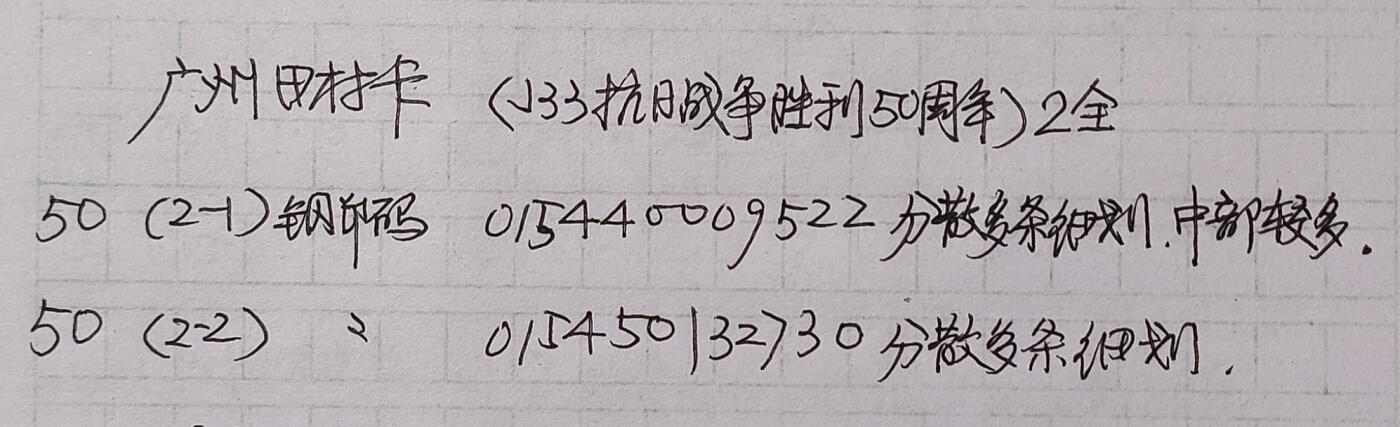 广州田村卡 (J33抗日战争胜利50周年)2全
50 (2-1)钢印码 015440009522分散多条细划.中部较多.
50 (2-2) 〃 015450132730分散多条细划.